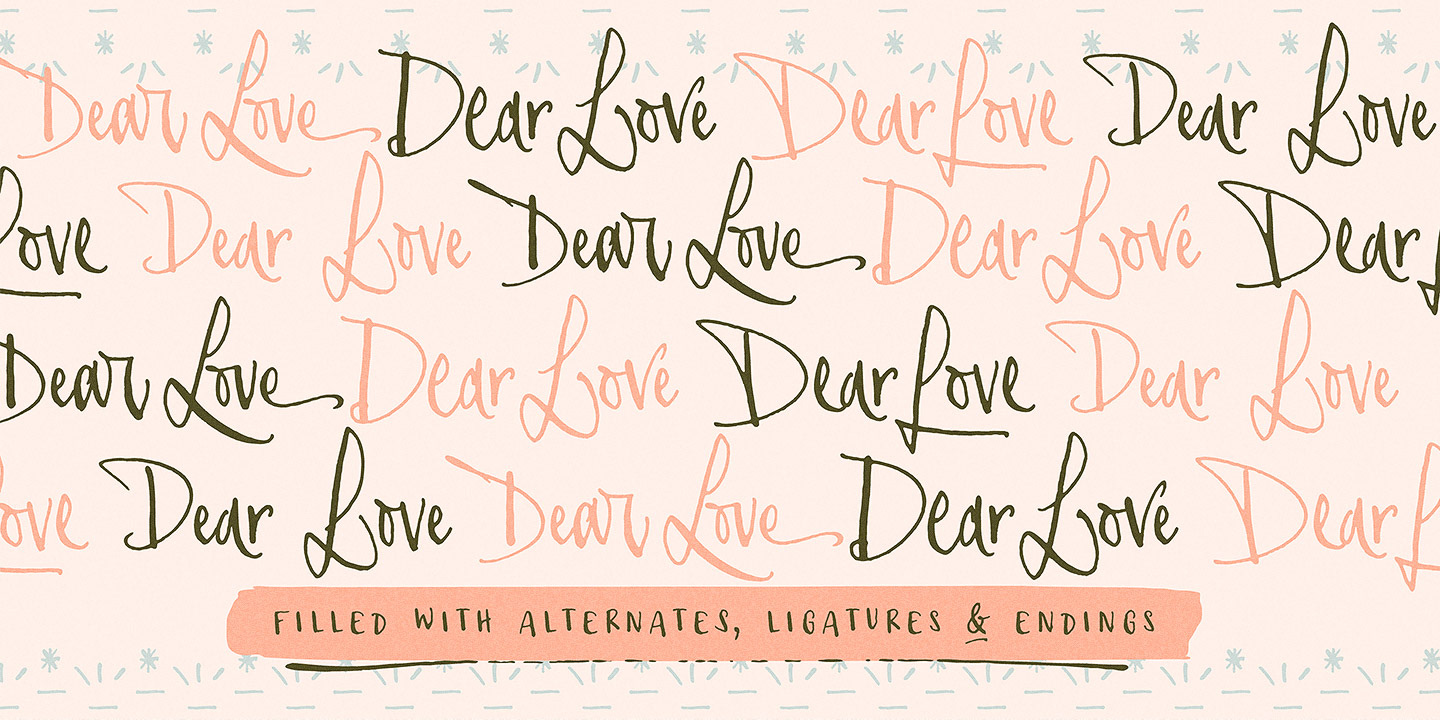 Dear Love Dear Love Dear Love Dear Love
Love Dear Love Dear Love Dear Love Dear
Dear Love Dear Love Dear Love Dear Love
Love Dear Love Dear Love Dear Love Dear
FILLED WITH ALTERNATES, LIGATURES & ENDINGS